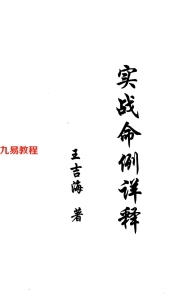 实战命例详释
王吉海 著
九易教程
www.9yjc.com